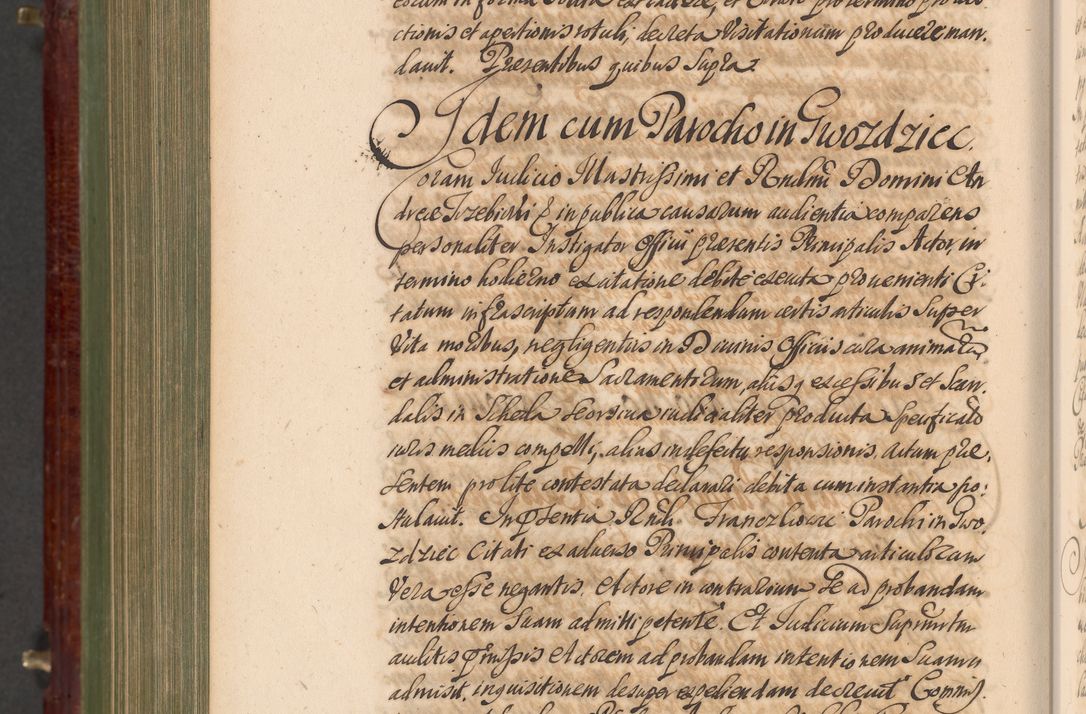 ctionis et apertionis rotuli, decreta Visitationum producere man.
davit. Presentibus quibus Supra.
Idem cum Parocho in Gwozdziec.
Coram Judicio Illustrissimi et Rndmi Domini An
dreæ Trzebicki & in publica causarum audientia comparens
personaliter Instigator Officii presentis Principalis Actor, in
termino hodierno ex citatione debite executa provenienti Ci:
tatum infrascriptum ad respondendum certis articulis Super
Vita moribus, negligentiis in Divinis Officiis cura animarum
et administratione Sacramentorum, aliisq excessibus et Scan
dalis in Scheda seorsiva iudicialiter producta specificatis
iuris mediis compelli, alias in defectu responsionis, actum pre,
sentem pro lite contestata declarari debita cum instantia po:
stulavit. In presentia Rndi Parochi in Gwo,
zdziec Citati ex adverso Principalis contenta articulorum
Vera esse negantis, Actore in contrarium se ad probandam
intentionem Suam admitti petente. Et Judicium Supremum
auditis premissis Actorem ad probandam intentionem Suam
admisit, inquisitionem desuper expediendam decrevit Commis.